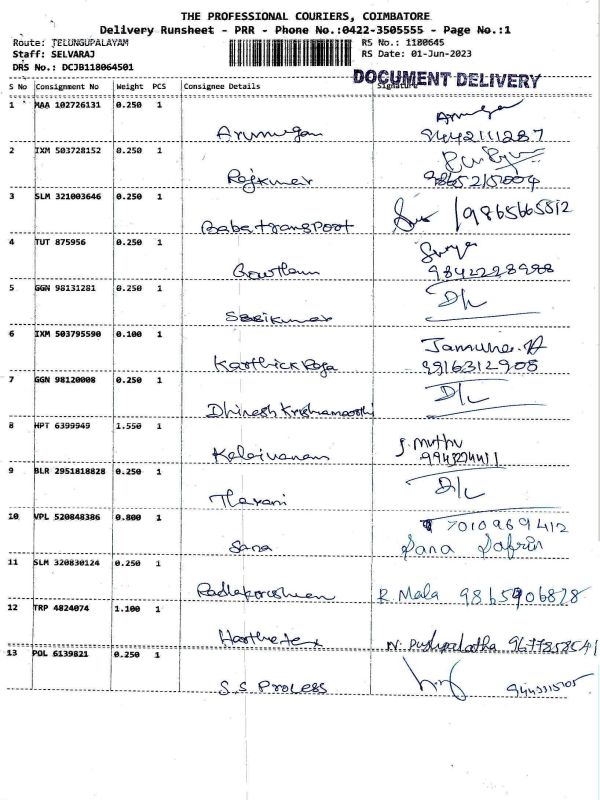 THE PROFESSIONAL COURIERS, COIMBATORE
Delivery Runsheet - PRR - Phone No.:0422-3505555 - Page No.:1
Route: TELUNGUPALAYAM RS No.: 1180645
Staff: SELVARAJ RS Date: 01-Jun-2023
DRS No.: DCJB118064501 DOCUMENT DELIVERY
S No Consignment No Weight PCS Consignee Details Signature
1 MAA 102726131 0.250 1
Arumugam 9442111287
2 IXM 503728152 0.250 1
Rajkumar 9865215004
3 SLM 321003646 0.250 1
Babatransport 9865665512
4 TUT 875956 0.250 1 Surya
Gowtham 9842228988
5 GGN 98131281 0.250 1 D/L
Sasikumar
6 IXM 503795590 0.100 1 Jamuna.A
Karthick Roja 9916312905
7 GGN 98120008 0.250 1 D/L
Dhinesh Krishnamoorthi
8 HPT 6399949 1.550 1 J. muthu
Kalaivanan
9 BLR 2951818828 0.250 1 D/L
Tharani
10 VPL 520848386 0.800 1 7010969412
Sana Sana Safrin
11 SLM 320830124 0.250 1
Radhakrishnan R. Mala 9865906828
12 TRP 4824074 1.100 1
N. Pushpalatha 9677858541
13 POL 6139821 0.250 1
S.S. Process